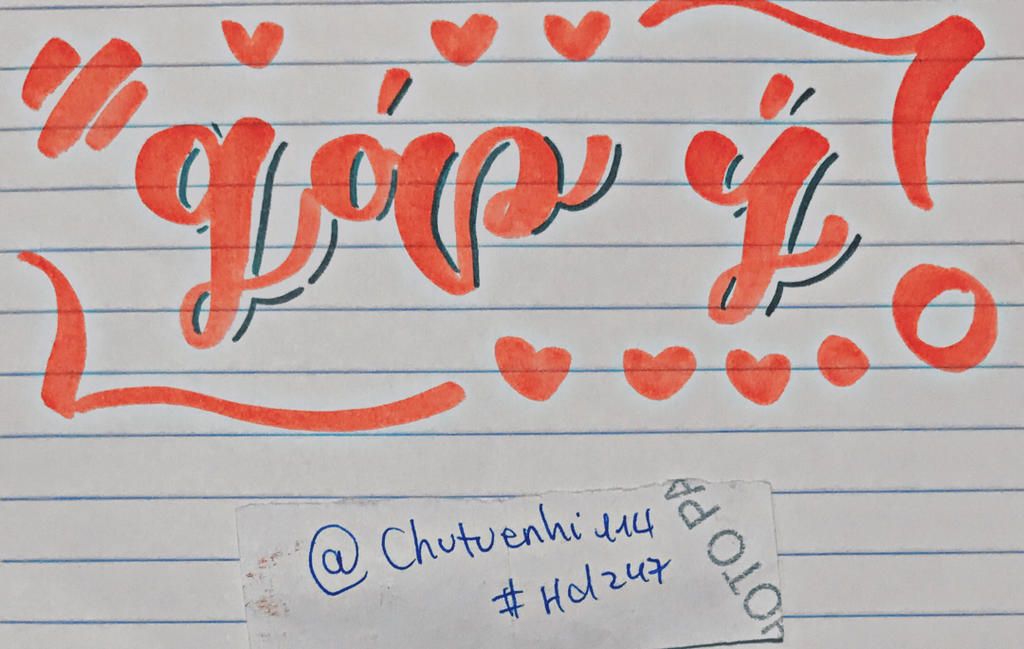 góp ý
@Chutuenhi114
#Hd247
OTO PA